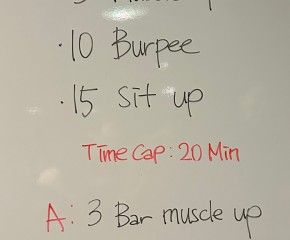 ·10 Burpee
·15 sit up
Time Cap: 20 Min
A: 3 Bar muscle up